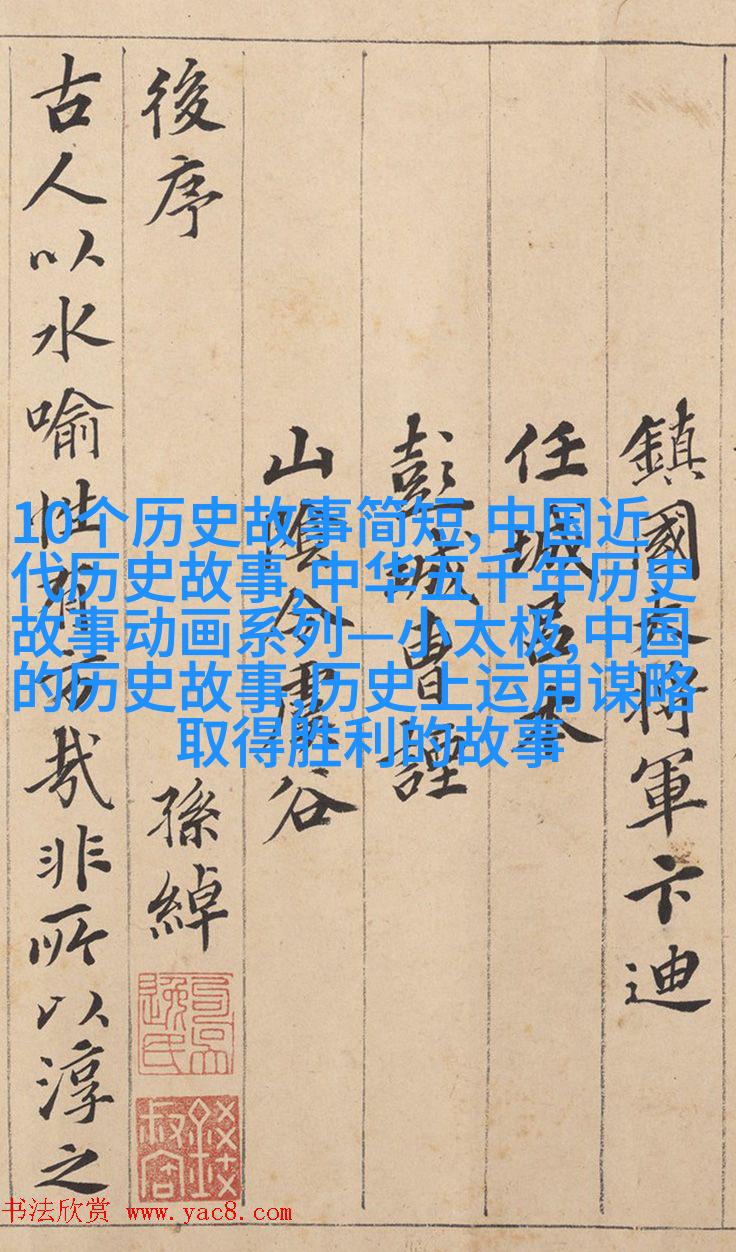 鎮國大將軍卞迪
任城呂本
彭城曹諲
山陰令虞谷
後序 孫綽
古人以水喻性有哉非所以淳之
10个历史故事简短,中国近
代历史故事,中华五千年历史
故事动画系列—小太极,中国
的历史故事,历史上运用谋略
取得胜利的故事
书法欣赏 www.yac8.com